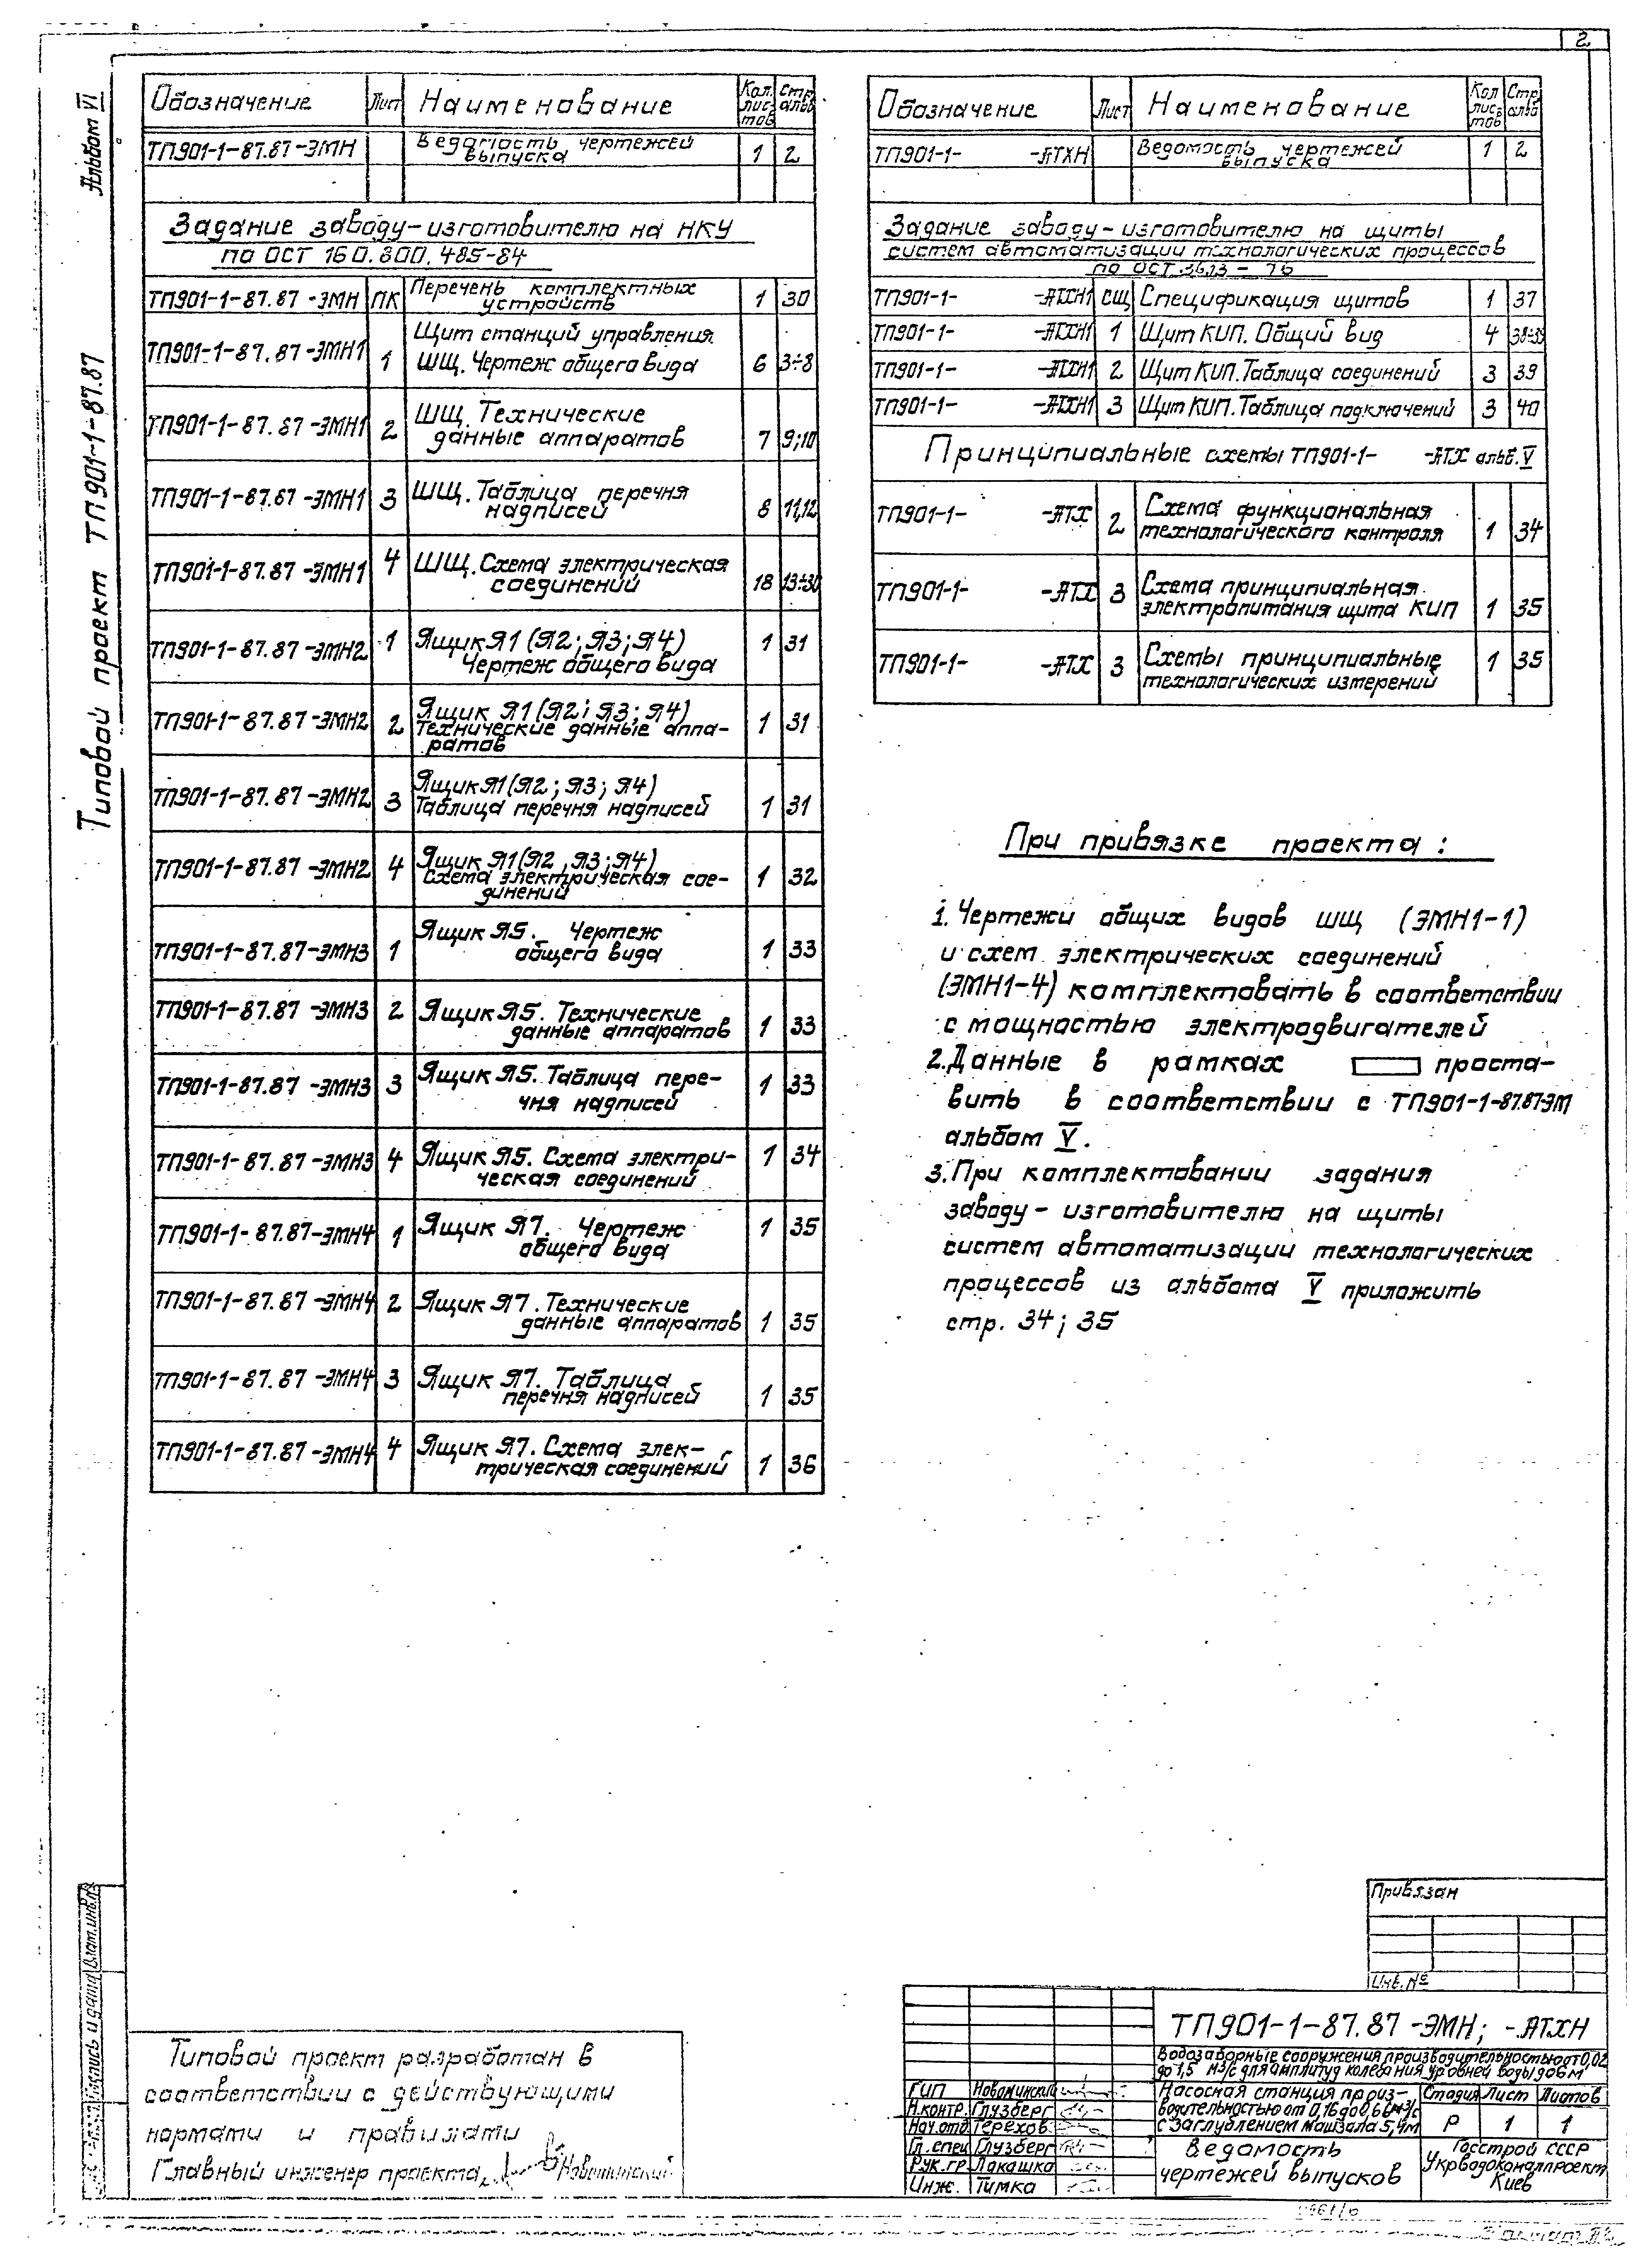 2
Альбом VI
Типовой проект ТП901-1-87.87
Обозначение Лист Наименование Кол. листов Стр. альб
ТП901-1-87.87-ЭМН Ведомость чертежей выпуска 1 2
Задание заводу-изготовителю на НКУ
по ОСТ 160.800.485-84
ТП901-1-87.87-ЭМН ПК Перечень комплектных устройств 1 30
ТП901-1-87.87-ЭМН1 1 Щит станций управления ШЩ. Чертеж общего вида 6 3÷8
ТП901-1-87.87-ЭМН1 2 ШЩ. Технические данные аппаратов 7 9;10
ТП901-1-87.87-ЭМН1 3 ШЩ. Таблица перечня надписей 8 11,12
ТП901-1-87.87-ЭМН1 4 ШЩ. Схема электрическая соединений 18 13÷30
ТП901-1-87.87-ЭМН2 1 Ящик Я1 (Я2; Я3; Я4) Чертеж общего вида 1 31
ТП901-1-87.87-ЭМН2 2 Ящик Я1 (Я2; Я3; Я4) Технические данные аппаратов 1 31
ТП901-1-87.87-ЭМН2 3 Ящик Я1 (Я2; Я3; Я4) Таблица перечня надписей 1 31
ТП901-1-87.87-ЭМН2 4 Ящик Я1 (Я2, Я3; Я4) Схема электрическая соединений 1 32
ТП901-1-87.87-ЭМН3 1 Ящик Я5. Чертеж общего вида 1 33
ТП901-1-87.87-ЭМН3 2 Ящик Я5. Технические данные аппаратов 1 33
ТП901-1-87.87-ЭМН3 3 Ящик Я5. Таблица перечня надписей 1 33
ТП901-1-87.87-ЭМН3 4 Ящик Я5. Схема электрическая соединений 1 34
ТП901-1-87.87-ЭМН4 1 Ящик Я7. Чертеж общего вида 1 35
ТП901-1-87.87-ЭМН4 2 Ящик Я7. Технические данные аппаратов 1 35
ТП901-1-87.87-ЭМН4 3 Ящик Я7. Таблица перечня надписей 1 35
ТП901-1-87.87-ЭМН4 4 Ящик Я7. Схема электрическая соединений 1 36
Обозначение Лист Наименование Кол листов Стр. альб
ТП901-1- -АТХН Ведомость чертежей выпуска 1 2
Задание заводу-изготовителю на щиты
систем автоматизации технологических процессов
по ОСТ 36.13-76
ТП901-1- -АТХН1 СЩ Спецификация щитов 1 37
ТП901-1- -АТХН1 1 Щит КИП. Общий вид 4 38÷39
ТП901-1- -АТХН1 2 Щит КИП. Таблица соединений 3 39
ТП901-1- -АТХН1 3 Щит КИП. Таблица подключений 3 40
Принципиальные схемы ТП901-1- -АТХ альб. V
ТП901-1- -АТХ 2 Схема функциональная технологического контроля 1 34
ТП901-1- -АТХ 3 Схема принципиальная электропитания щита КИП 1 35
ТП901-1- -АТХ 3 Схемы принципиальные технологических измерений 1 35
При привязке проекта:
1. Чертежи общих видов ШЩ (ЭМН1-1)
и схем электрических соединений
(ЭМН1-4) комплектовать в соответствии
с мощностью электродвигателей
2. Данные в рамках проста-
вить в соответствии с ТП901-1-87.87-ЭМ
альбом V.
3. При комплектовании задания
заводу-изготовителю на щиты
систем автоматизации технологических
процессов из альбома V приложить
стр. 34; 35
Привязан
Инв. №
ТП901-1-87.87-ЭМН; -АТХН
Водозаборные сооружения производительностью от 0,02
до 1,5 м3/с для амплитуд колебания уровней воды до 6м
Насосная станция произ-
водительностью от 0,16 до 0,66 м3/с
с заглублением машзала 5,4м
Стадия Лист Листов
Р 1 1
ГИП Новоминский
Н.контр. Глузберг
Нач.отд Терехов
Гл.спец Глузберг
Рук.гр Лакашка
Инж. Тимка
Ведомость
чертежей выпусков
Госстрой СССР
Укрводоканалпроект
Киев
Типовой проект разработан в
соответствии с действующими
нормами и правилами
Главный инженер проекта Новоминский
Подпись и дата Взам.инв.№
Формат А2